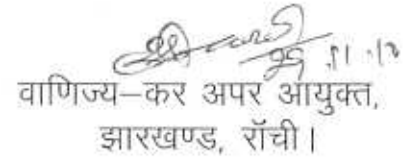 वाणिज्य–कर अपर आयुक्त,
झारखण्ड, राँची।